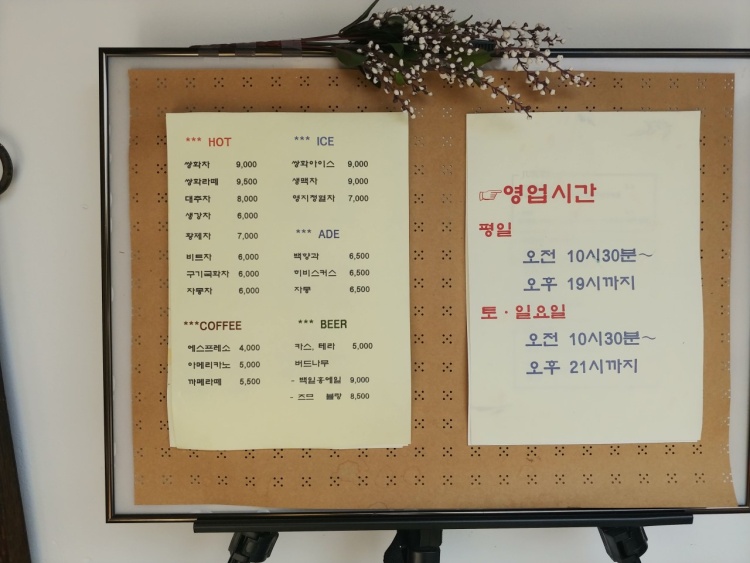 *** HOT
쌍화차 9,000
쌍화라떼 9,500
대추차 8,000
생강차 6,000
황제차 7,000
비트차 6,000
구기국화차 6,000
자몽차 6,000
***COFFEE
에스프레소 4,000
아메리카노 5,000
까페라떼 5,500
*** ICE
쌍화아이스 9,000
생맥차 9,000
영지청혈차 7,000
*** ADE
백향과 6,500
히비스커스 6,500
자몽 6,500
*** BEER
카스, 테라 5,000
버드나무
- 백일홍에일 9,000
- 즈므 블랑 8,500
☞영업시간
평일
오전 10시30분~
오후 19시까지
토·일요일
오전 10시30분~
오후 21시까지